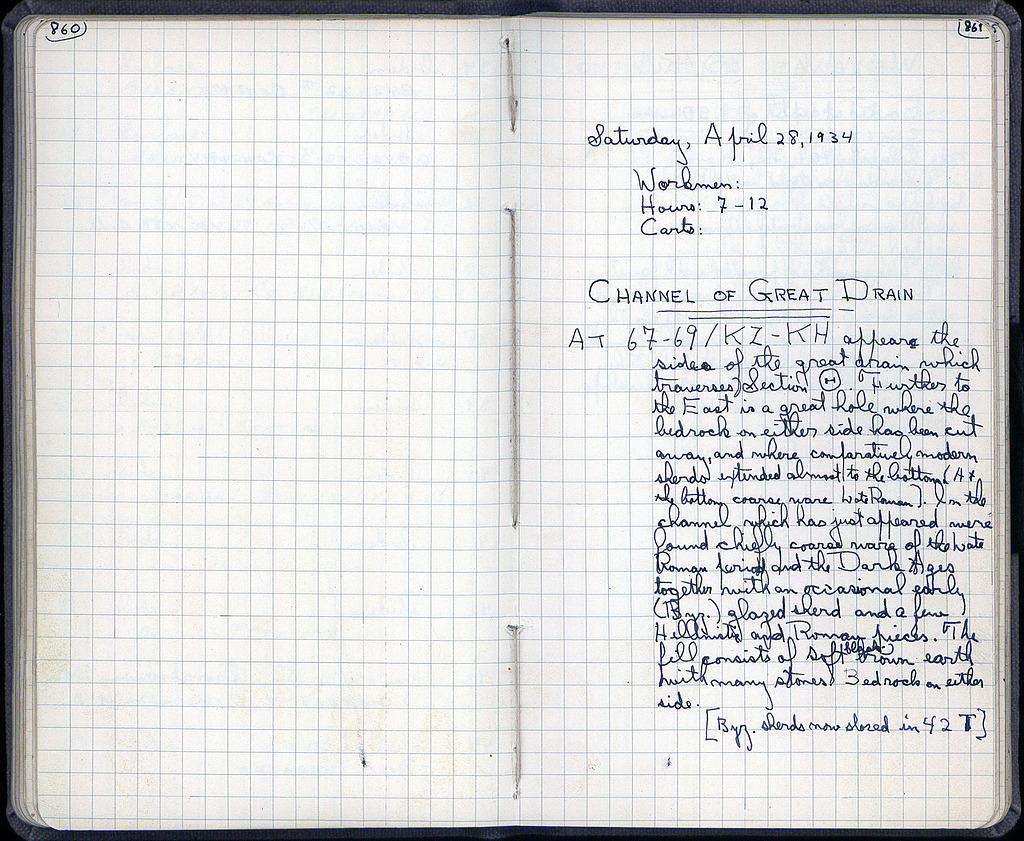 860
861
Saturday, April 28, 1934
Workmen:
Hours: 7-12
Carts:
CHANNEL OF GREAT DRAIN
AT 67-69/KZ-KH appears the
sides of the great drain which
traverses Section Θ. Further to
the East is a great hole where the
bedrock on either side has been cut
away, and where comparatively modern
sherds extended almost to the bottom [At
the bottom coarse ware Late Roman]. In the
channel which has just appeared were
found chiefly coarse ware of the Late
Roman period and the Dark Ages
together with an occasional early
(Byz.) glazed sherd and a few
Hellenistic and Roman pieces. The
fill consists of soft brown earth
with many stones. Bedrock on either
side.
[Byz. sherds now stored in 42 T]